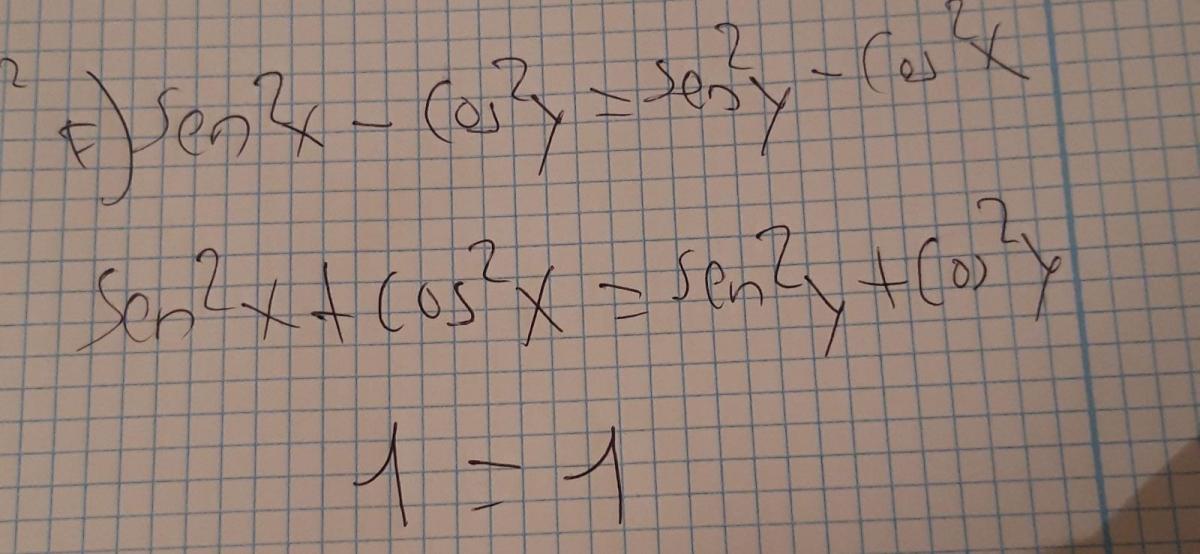 2
F) Sen²x - Cos²y = Sen²y - Cos²x
Sen²x + Cos²x = Sen²y + Cos²y
1 = 1